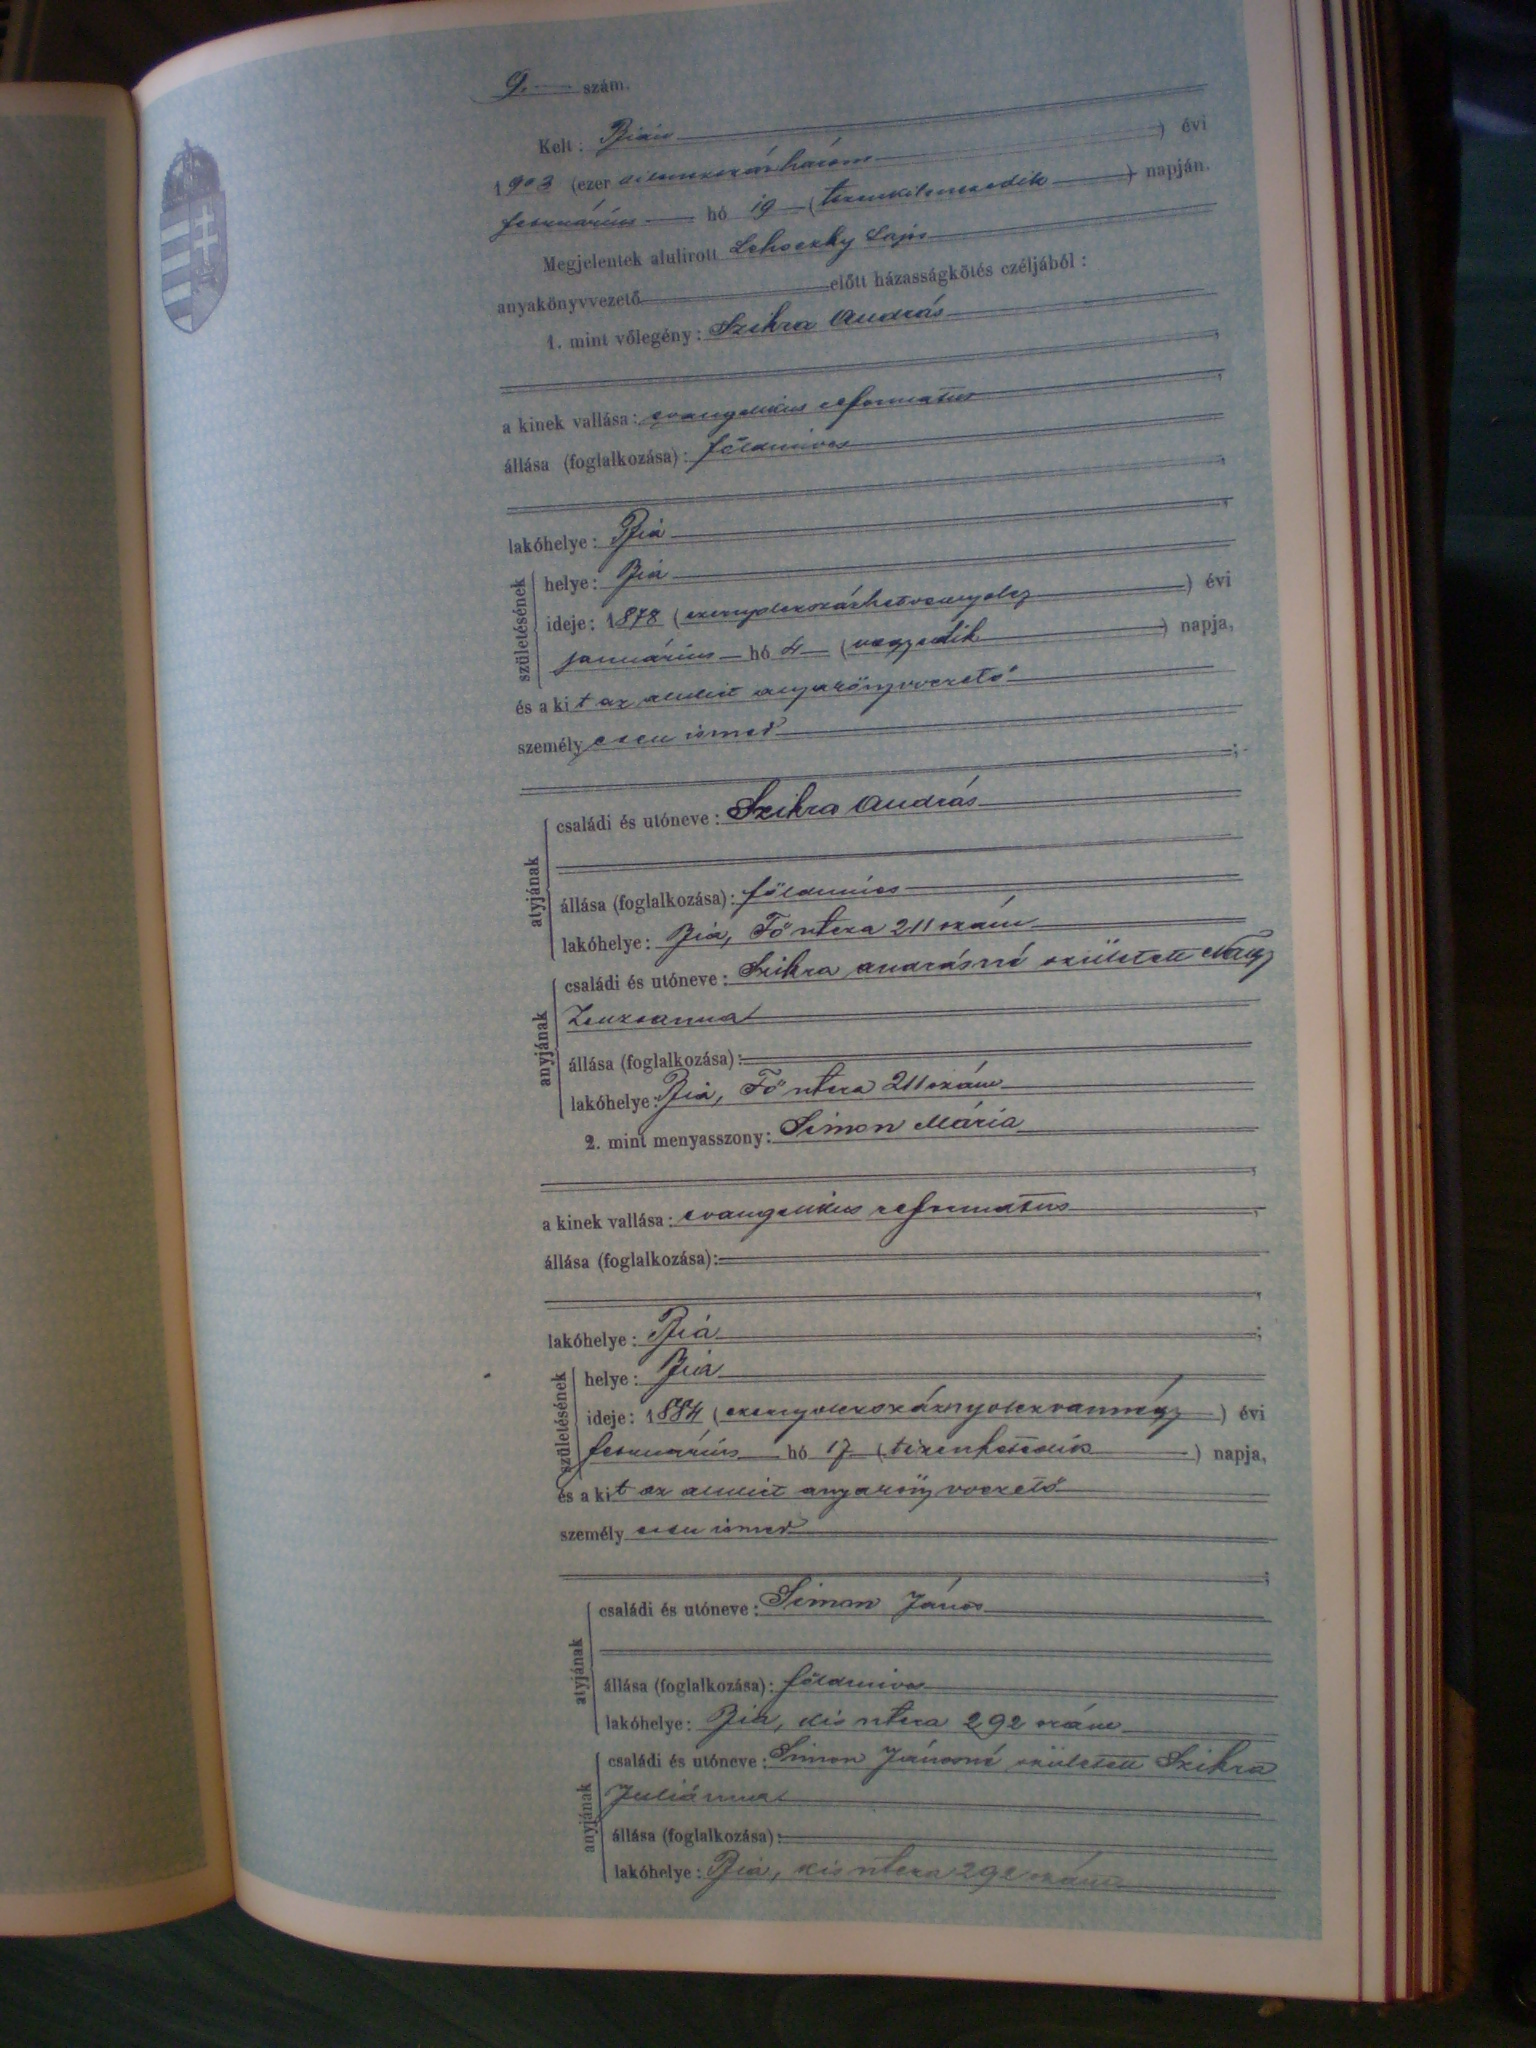 9. szám.
Kelt: Bián
1903 (ezer kilencszázhárom) évi
februárius hó 19 (tizenkilencedik) napján.
Megjelentek alulirott Lehoczky Lajos
anyakönyvvezető előtt házasságkötés czéljából:
1. mint vőlegény: Szikra András
a kinek vallása: evangelikus reformatus
állása (foglalkozása): földmives
lakóhelye: Bia
születésének
helye: Bia
ideje: 1878 (ezernyolczszázhetvennyolcz) évi
januárius hó 4 (negyedik) napja,
és a kit az alulirt anyakönyvvezető
személyesen ismer
;
atyjának
családi és utóneve: Szikra András
állása (foglalkozása): földmives
lakóhelye: Bia, Fő utcza 211 szám
anyjának
családi és utóneve: Szikra Andrásné született Nagy
Zsuzsanna
állása (foglalkozása):
lakóhelye: Bia, Fő utcza 211 szám
2. mint menyasszony: Simon Mária
a kinek vallása: evangelikus reformatus
állása (foglalkozása):
lakóhelye: Bia ;
születésének
helye: Bia
ideje: 1884 (ezernyolczszáznyolczvannégy) évi
februárius hó 17 (tizenhetedik) napja,
és a kit az alulirt anyakönyvvezető
személyesen ismer
;
atyjának
családi és utóneve: Simon János
állása (foglalkozása): földmives
lakóhelye: Bia, kis utcza 292 szám
anyjának
családi és utóneve: Simon Jánosné született Szikra
Juliánna
állása (foglalkozása):
lakóhelye: Bia, kis utcza 292 szám